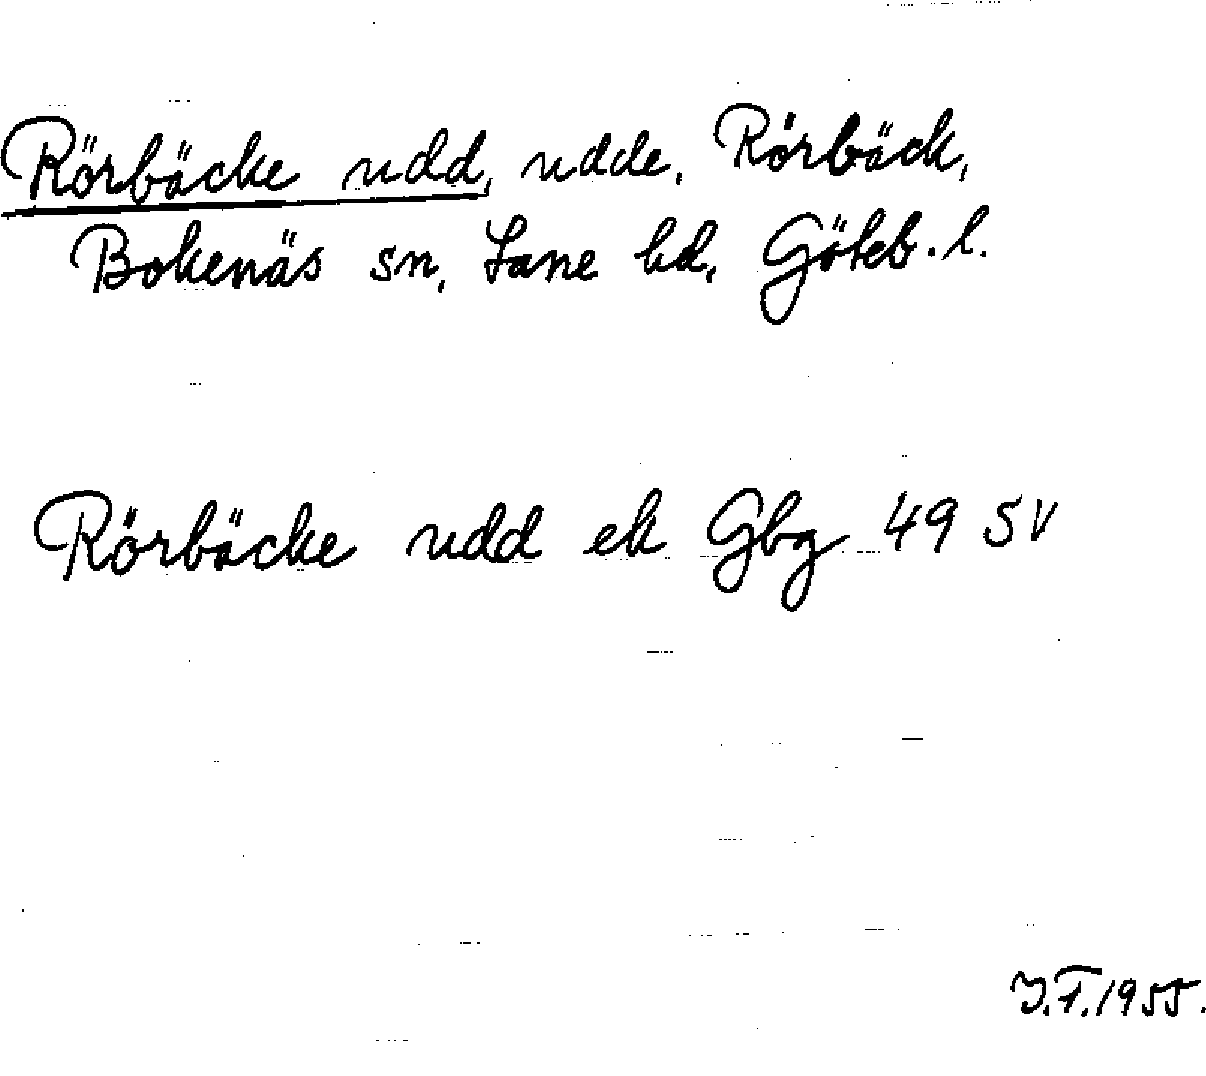 Rörbäcke udd, udde, Rörbäck,
Bokenäs sn, Lane hd, Göteb. l.
Rörbäcke udd ek Gbg 49 SV
J.T. 1955.